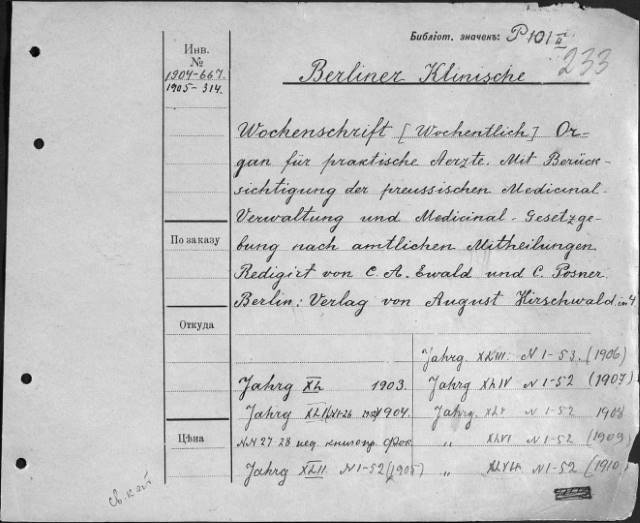 Библіот. значекъ: P 101 II
233
Инв.
№
1904-667.
1905-314.
Berliner Klinische
Wochenschrift [Wochentlich] Or-
gan für praktische Aerzte. Mit Berück-
sichtigung der preussischen Medicinal-
Verwaltung und Medicinal-Gesetzge-
bung nach amtlichen Mittheilungen.
По заказу
Redigirt von C. A. Ewald und C. Posner.
Berlin: Verlag von August Hirschwald. in 4
Откуда
Jahrg. XLIII. N 1-53. (1906)
Jahrg XL 1903.
Jahrg XLIV N 1-52 (1907)
Jahrg XLI 1904.
Jahrg. XLV N 1-52 1908
Цѣна
NN 27-28
" XLVI N 1-52 (1909)
Jahrg XLII N 1-52 (1905)
" XLVII N 1-52 (1910)